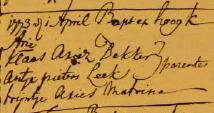 1773 di 1 April Bapt ex hoogk
Arie
Klaas Ariez Dekker } parentes
Antje pieters Leek
trijntje Aries Matrina